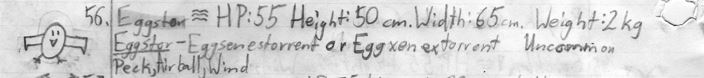 56. Eggston ≋ HP:55 Height:50 cm. Width:65cm. Weight:2 kg
Eggstor-Eggsenestorrent or Eggxenextorrent Uncommon
Peck, Airball, Wind